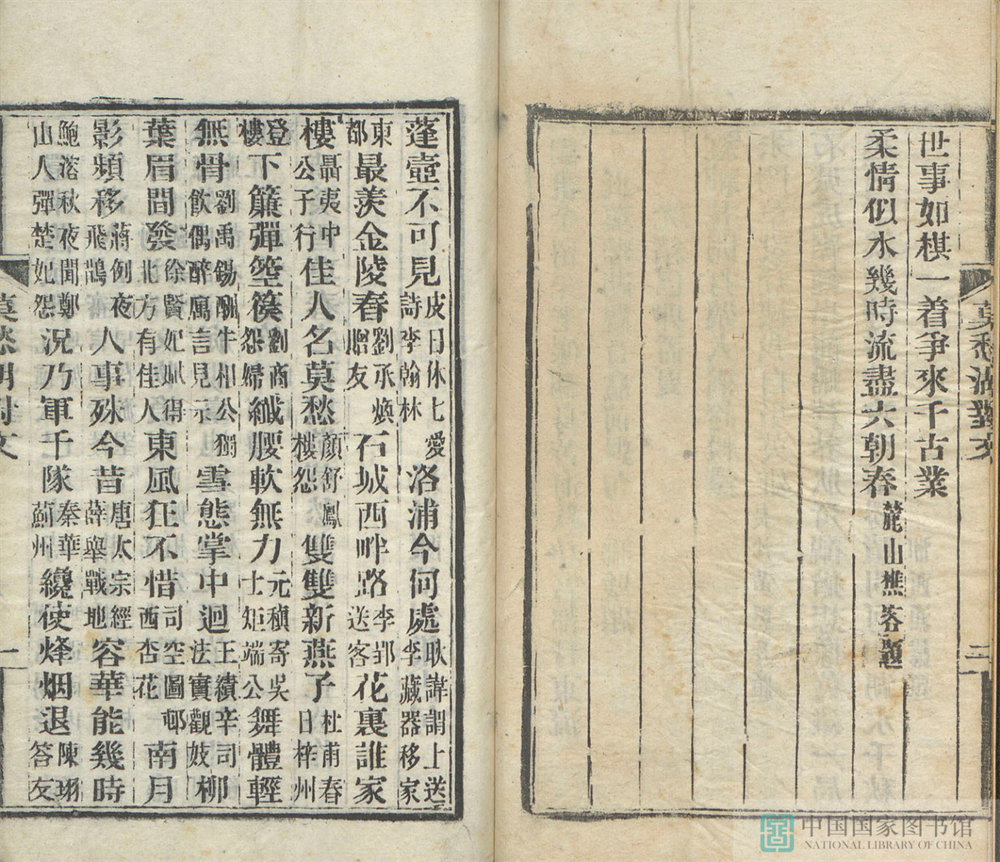 莫愁湖對文 二
世事如棋一着爭來千古業
柔情似水幾時流盡六朝春 麓山樵客題
蓬壺不可見 皮日休七愛詩李翰林 洛浦今何處 耿諱謂上送李藏器移家
東都 最羨金陵春 劉承煥贈友 石城西畔路 李郢送客 花裏誰家
樓 聶夷中公子行 佳人名莫愁 顏舒鳳樓怨 雙雙新燕子 杜甫春日梓州
登樓 下簾彈箜篌 劉商怨婦 纖腰軟無力 元稹寄吳士矩端公 舞體輕
無骨 劉禹錫酬牛相公獨飲偶醉寓言見示 雪態掌中迴 王績辛司法實觀妓 柳
葉眉間發 徐賢妃賦得北方有佳人 東風狂不惜 司空圖邨西杏花 南月
影頻移 蔣例夜飛鵲 人事殊今昔 唐太宗經薛舉戰地 容華能幾時
鮑溶秋夜聞鄭山人彈楚妃怨 況乃軍千隊 秦華薊州 纔使烽烟退 陳珝答友
莫愁湖對文 一
中国国家图书馆
NATIONAL LIBRARY OF CHINA